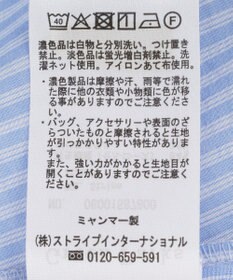 40
F
濃色品は白物と分別洗い。つけ置き
禁止、淡色は蛍光増白剤禁止。洗
濯ネット使用。アイロンあて布使用。
・濃色製品は摩擦や汗、雨等で濡れ
た際に他の衣類や小物類に色が移
る事がありますのでご注意下さい。
・バッグ、アクセサリーや表面のざ
らついたものと摩擦されると生地が
引っかかりやすい特性があります。
また、強い力がかかると生地の目が
開くことがありますのでご注意下さい。
ミャンマー製
(株)ストライプインターナショナル
0120-659-591